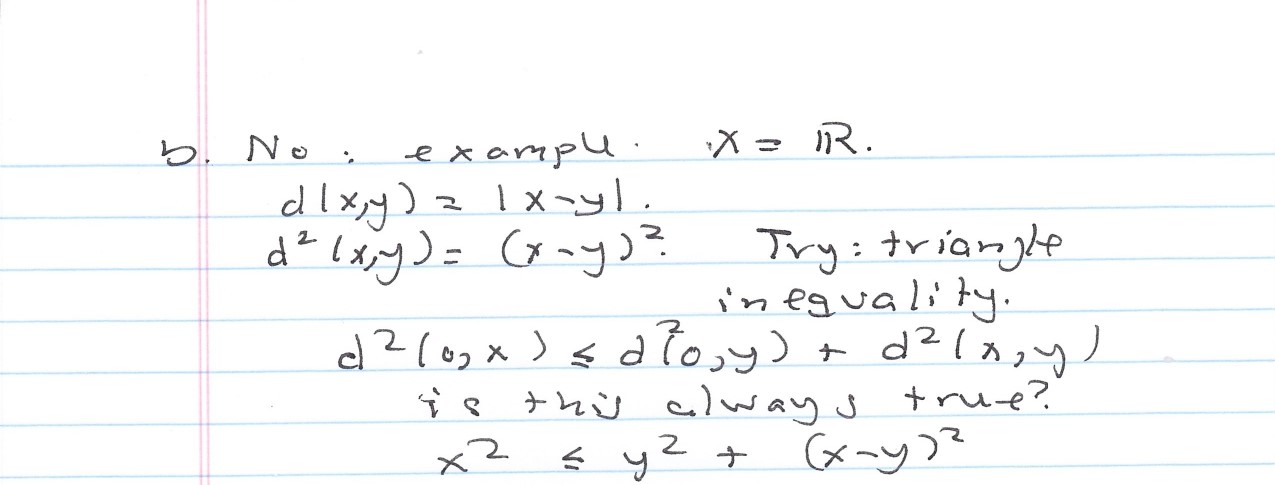 b. No: example. X = ℝ.
d(x,y) = |x-y|.
d²(x,y) = (x-y)². Try: triangle
inequality.
d²(0,x) ≤ d²(0,y) + d²(x,y)
is this always true?
x² ≤ y² + (x-y)²